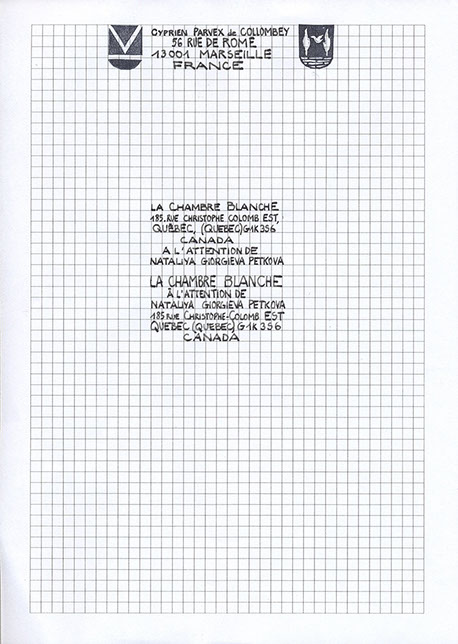 CYPRIEN PARVEX de COLLOMBEY
56 RUE DE ROME
13001 MARSEILLE
FRANCE
LA CHAMBRE BLANCHE
185. RUE CHRISTOPHE COLOMB EST,
QUÉBEC, (QUEBEC) G1K 3S6
CANADA
A L'ATTENTION DE
NATALIYA GIORGIEVA PETKOVA
LA CHAMBRE BLANCHE
À L'ATTENTION DE
NATALIYA GIORGIEVA PETKOVA
185 RUE CHRISTOPHE-COLOMB EST
QUEBEC (QUEBEC) G1K 3S6
CANADA